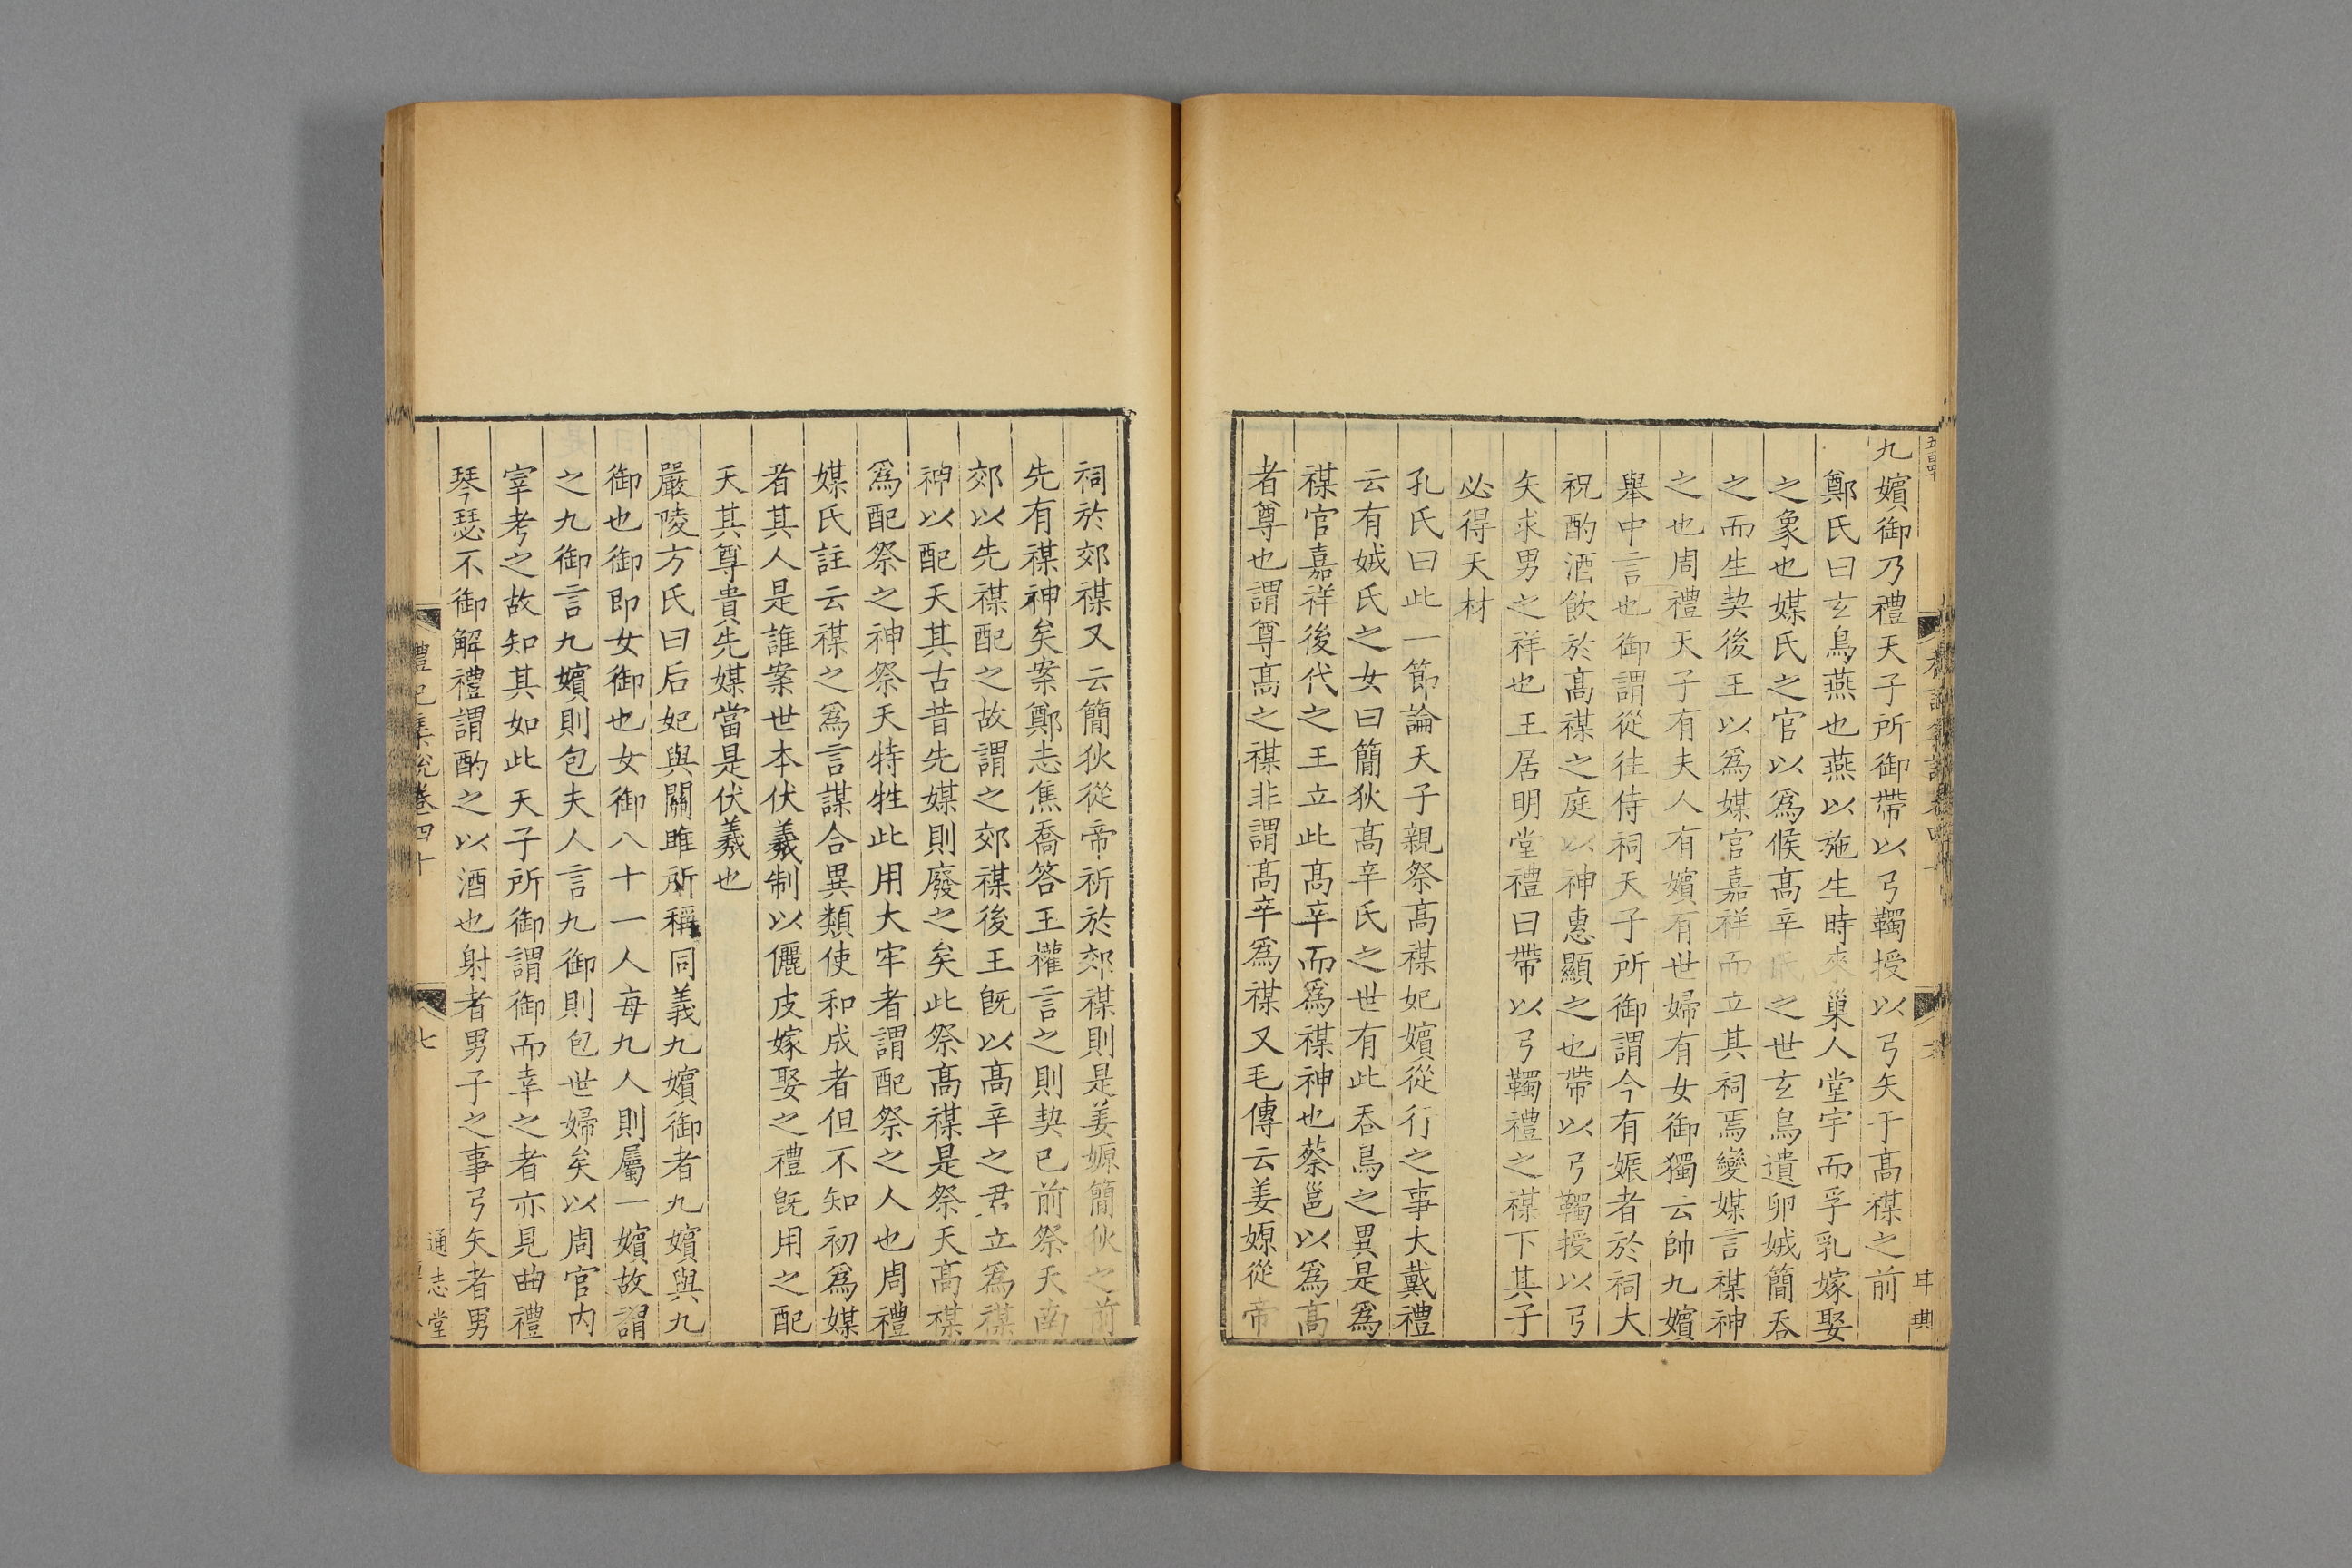 九嬪御乃禮天子所御帶以弓韣授以弓矢于髙禖之前
鄭氏曰玄鳥燕也燕以施生時來巢人堂宇而孚乳嫁娶
之象也媒氏之官以爲候髙辛氏之世玄鳥遺卵娀簡吞
之而生契後王以爲媒官嘉祥而立其祠焉變媒言禖神
之也周禮天子有夫人有嬪有世婦有女御獨云帥九嬪
舉中言也御謂從往侍祠天子所御謂今有娠者於祠大
祝酌酒飲於髙禖之庭以神惠顯之也帶以弓韣授以弓
矢求男之祥也王居明堂禮曰帶以弓韣禮之禖下其子
必得天材
孔氏曰此一節論天子親祭髙禖妃嬪從行之事大戴禮
云有娀氏之女曰簡狄髙辛氏之世有此吞鳥之異是爲
禖官嘉祥後代之王立此髙辛而爲禖神也蔡邕以爲髙
者尊也謂尊髙之禖非謂髙辛爲禖又毛傳云姜嫄從帝
祠於郊禖又云簡狄從帝祈於郊禖則是姜嫄簡狄之前
先有禖神矣案鄭志焦喬答王權言之則契已前祭天南
郊以先禖配之故謂之郊禖後王旣以髙辛之君立爲禖
神以配天其古昔先媒則廢之矣此祭髙禖是祭天髙禖
爲配祭之神祭天特牲此用大牢者謂配祭之人也周禮
媒氏註云禖之爲言謀合異類使和成者但不知初爲媒
者其人是誰案世本伏羲制以儷皮嫁娶之禮旣用之配
天其尊貴先媒當是伏羲也
嚴陵方氏曰后妃與關雎所稱同義九嬪御者九嬪與九
御也御即女御也女御八十一人每九人則屬一嬪故謂
之九御言九嬪則包夫人言九御則包世婦矣以周官内
宰考之故知其如此天子所御謂御而幸之者亦見曲禮
琴瑟不御解禮謂酌之以酒也射者男子之事弓矢者男
禮記集說卷四十
七
通志堂